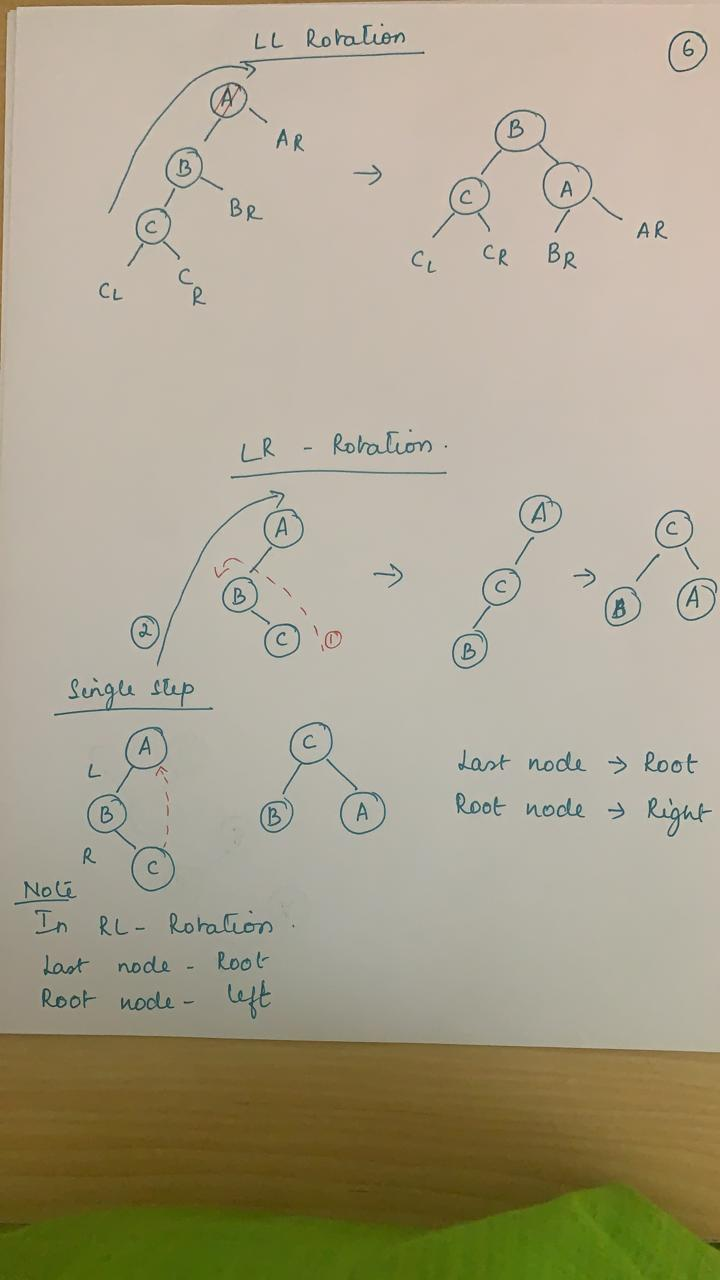 LL Rotation
6
A
AR
B
BR
C
CL
CR
→
B
C
A
CL
CR
BR
AR
LR - Rotation.
A
B
C
1
2
→
A
C
B
→
C
B
A
Single step
A
L
B
R
C
C
B
A
Last node → Root
Root node → Right
Note
In RL- Rotation.
Last node - Root
Root node - left